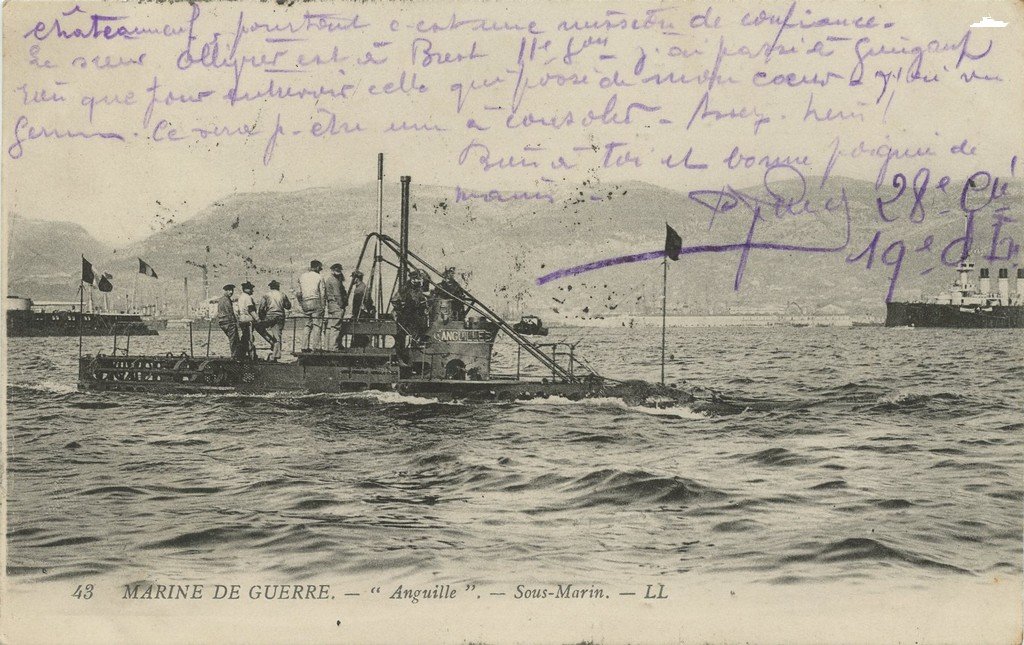 châteauneuf, pourtant c'est une mission de confiance.
Le sieur est à Brest 11e Gon J'ai passé à Guingamp
rien que pour entrevoir celle qui possède mon cœur - J'ai vu
Ce sera p-être une à consoler - Assez. hein!
Bien à toi et bonne poignée de
mains -
28e Cie
19e d'I
ANGUILLE
43 MARINE DE GUERRE. — " Anguille ". — Sous-Marin. — LL